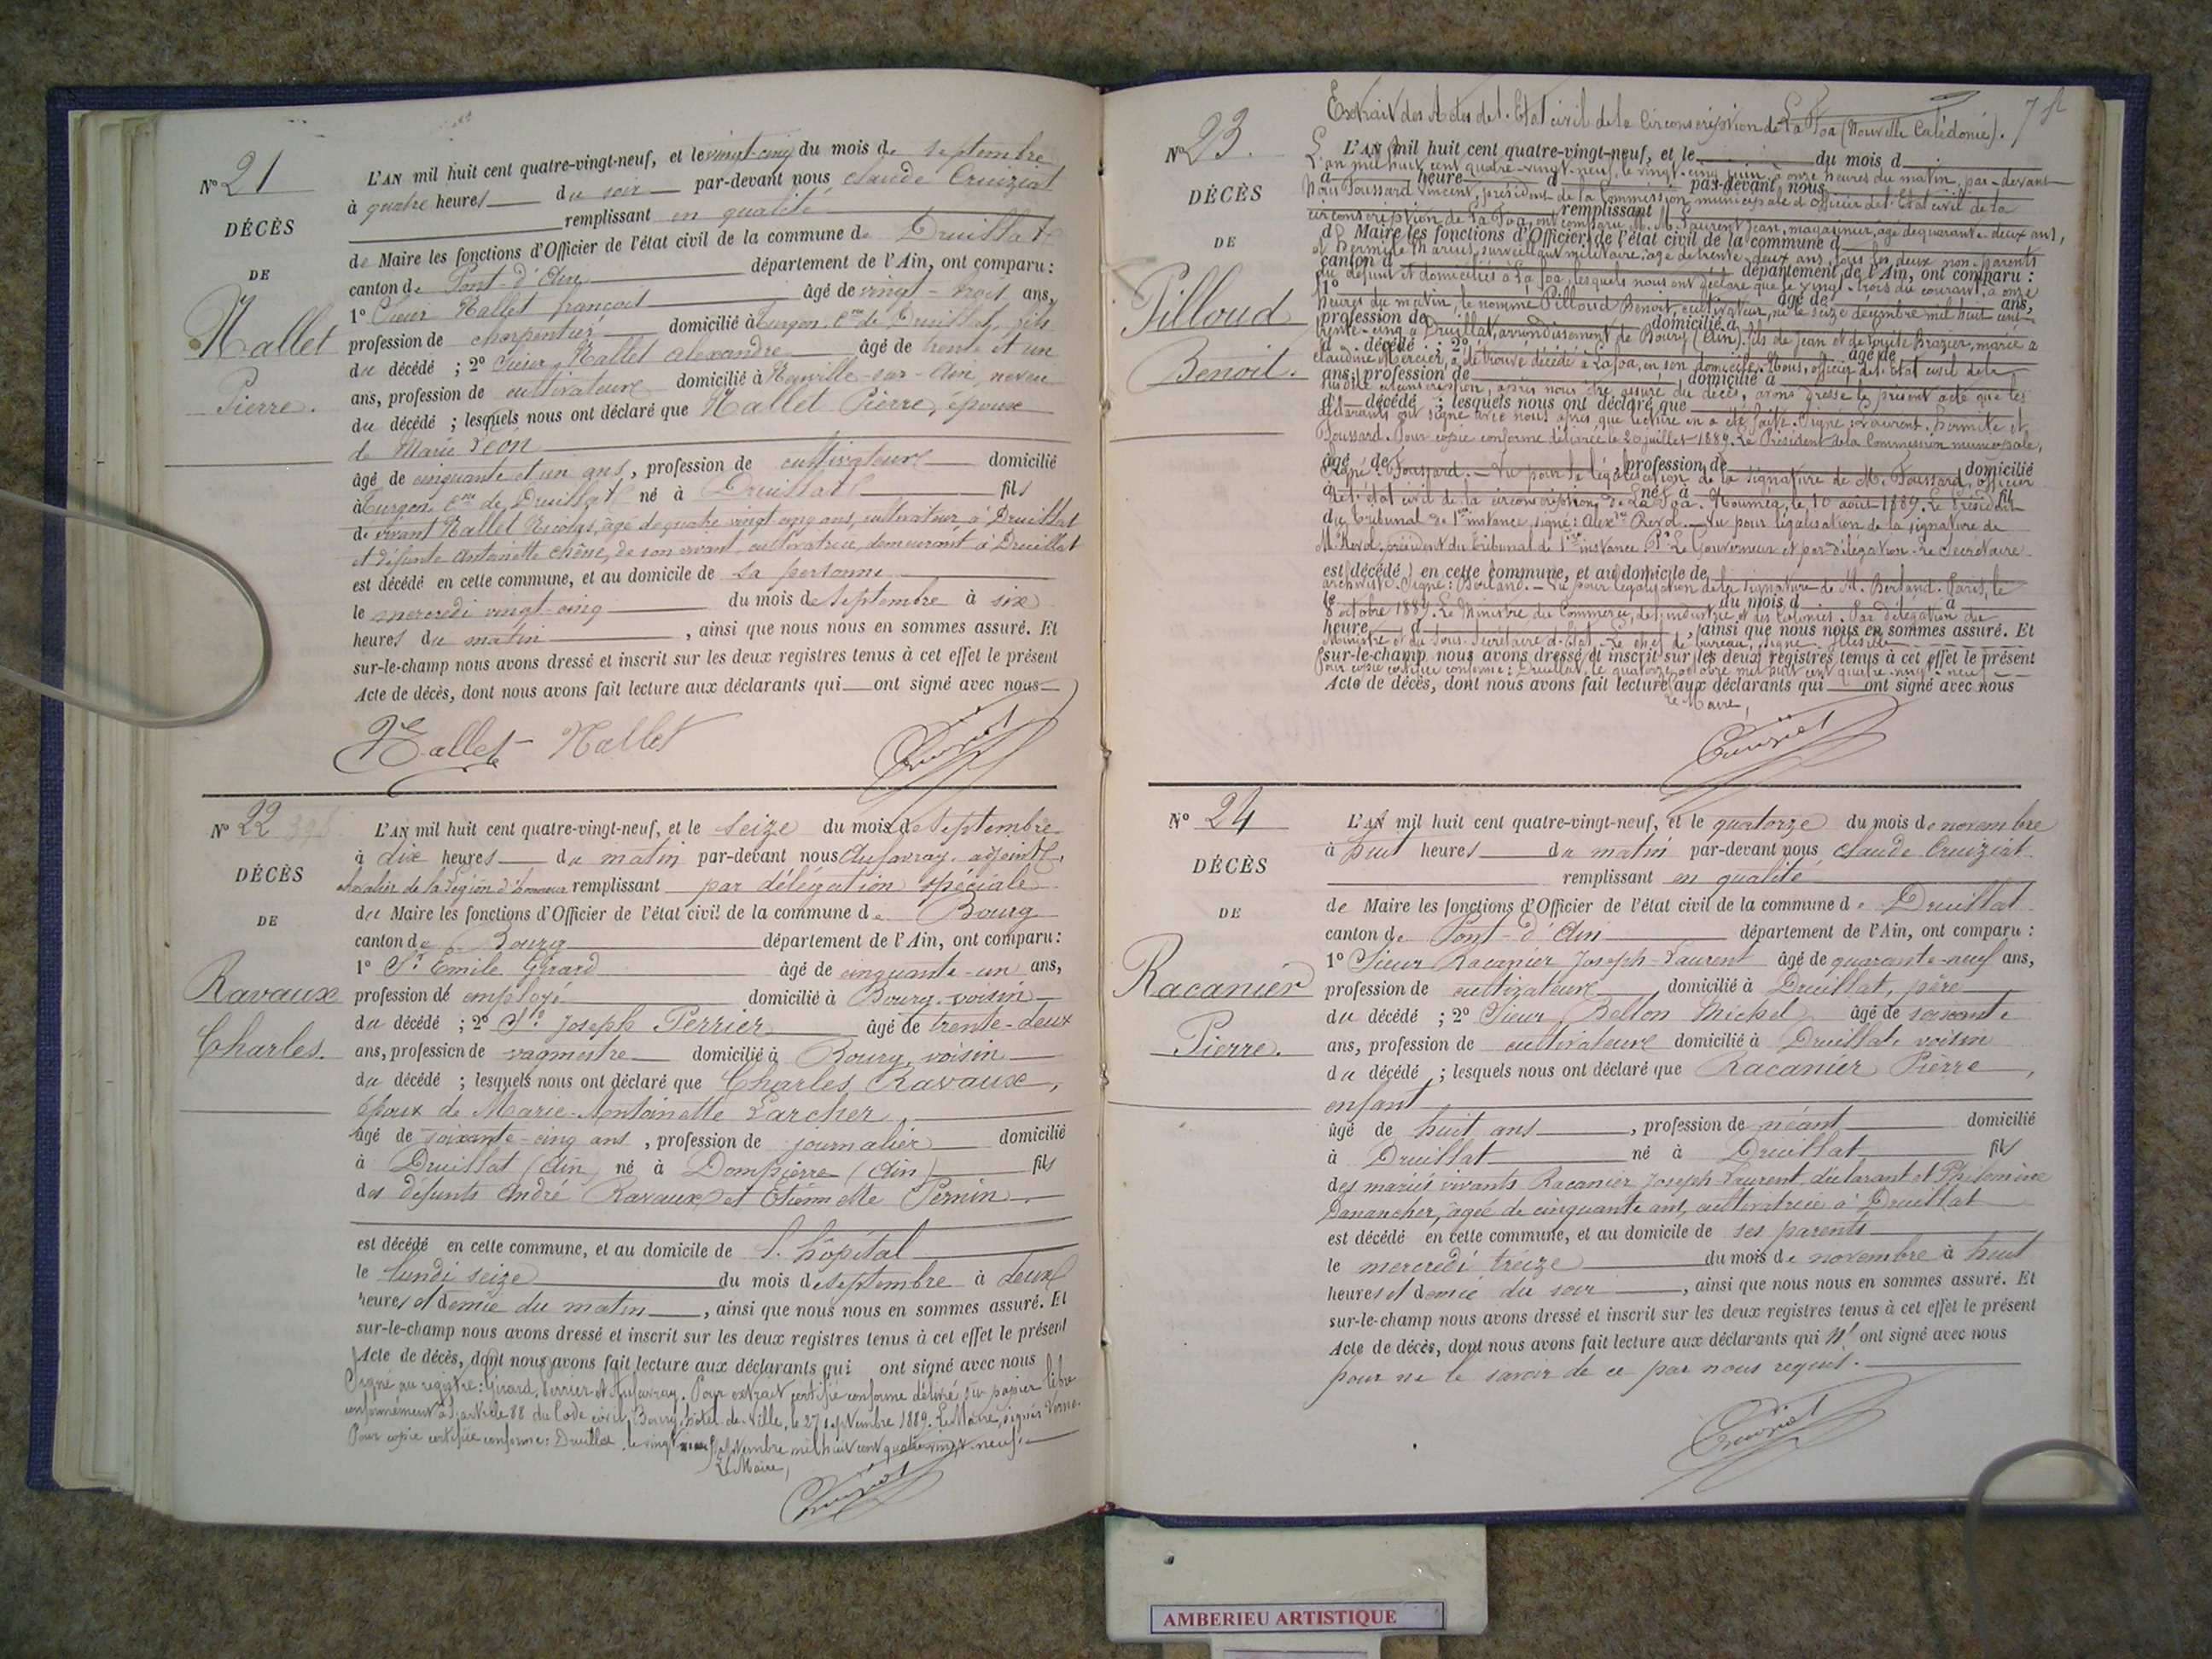 N° 21
DÉCÈS
DE
Hallet
Pierre.
L'AN mil huit cent quatre-vingt-neuf, et le vingt-cinq du mois de septembre
à quatre heures du soir par-devant nous Claude Cruiziat
remplissant en qualité
de Maire les fonctions d'Officier de l'état civil de la commune de Druillat
canton de Pont-d'Ain département de l'Ain, ont comparu :
1° Sieur Hallet françois âgé de vingt-trois ans,
profession de charpentier domicilié à Turgon, Cne de Druillat, fils
du décédé ; 2° Sieur Hallet alexandre âgé de trente et un
ans, profession de cultivateur domicilié à Neuville-sur-Ain, neveu
du décédé ; lesquels nous ont déclaré que Hallet Pierre, époux
de Marie Péon
âgé de cinquante et un ans, profession de cultivateur domicilié
à Turgon, Cne de Druillat né à Druillat fils
de vivant Hallet Nicolas, âgé de quatre vingt cinq ans, cultivateur à Druillat
et défunte Antoinette Chêne, de son vivant cultivatrice, demeurant à Druillat
est décédé en cette commune, et au domicile de sa personne
le mercredi vingt-cinq du mois de septembre à six
heures du matin, ainsi que nous nous en sommes assuré. Et
sur-le-champ nous avons dressé et inscrit sur les deux registres tenus à cet effet le présent
Acte de décès, dont nous avons fait lecture aux déclarants qui ont signé avec nous
Hallet Hallet Cruiziat
N° 22
DÉCÈS
DE
Ravaux
Charles.
L'AN mil huit cent quatre-vingt-neuf, et le seize du mois de septembre
à dix heures du matin par-devant nous Aufavray, adjoint,
chevalier de la Légion d'honneur remplissant par délégation spéciale
du Maire les fonctions d'Officier de l'état civil de la commune de Bourg
canton de Bourg département de l'Ain, ont comparu :
1° Sr Emile Girard âgé de cinquante-un ans,
profession de employé domicilié à Bourg, voisin
du décédé ; 2° Sr Joseph Perrier âgé de trente-deux
ans, profession de vagmestre domicilié à Bourg, voisin
du décédé ; lesquels nous ont déclaré que Charles Ravaux,
époux de Marie-Antoinette Larcher,
âgé de soixante-cinq ans, profession de journalier domicilié
à Druillat (Ain) né à Dompierre (Ain) fils
des défunts André Ravaux et Etiennette Pernin
est décédé en cette commune, et au domicile de l'hôpital
le lundi seize du mois de septembre à deux
heures et demie du matin, ainsi que nous nous en sommes assuré. Et
sur-le-champ nous avons dressé et inscrit sur les deux registres tenus à cet effet le présent
Acte de décès, dont nous avons fait lecture aux déclarants qui ont signé avec nous
Signé au registre : Girard, Perrier et Aufavray. Pour extrait certifié conforme délivré sur papier libre
conformément à l'article 88 du Code civil. Bourg, hôtel de Ville, le 27 septembre 1889. Le Maire, signé
Pour copie certifiée conforme : Druillat, le vingt septembre mil huit cent quatre vingt neuf.
Le Maire,
Cruiziat
7
N° 23.
DÉCÈS
DE
Pilloud
Benoit.
Extrait des Actes de l'Etat civil de la Circonscription de La Foa (Nouvelle Calédonie).
L'AN mil huit cent quatre-vingt-neuf, et le du mois d
L'an mil huit cent quatre-vingt-neuf, le vingt-cinq juin, à onze heures du matin, par-devant
à heure d par-devant nous
Nous Foussard Vincent, président de la Commission municipale d'officier de l'Etat civil de la
remplissant
circonscription de La Foa, ont comparu M. M. Laurent Jean, magasinier, âgé de quarante-deux ans,
d Maire les fonctions d'Officier de l'état civil de la commune d
et Hermite Marius, surveillant militaire, âgé de trente-deux ans, tous les deux non parents
canton d département de l'Ain, ont comparu :
du défunt et domiciliés à La Foa, lesquels nous ont déclaré que le vingt-trois du courant, à onze
1° âgé de ans,
heures du matin, le nommé Pilloud Benoit, cultivateur, né le seize décembre mil huit cent
profession de domicilié à
trente-cinq à Druillat, arrondissement de Bourg (Ain), fils de Jean et de Brazier, marié à
d décédé ; 2° âgé de
Claudine Mercier, a été trouvé décédé à La Foa, en son domicile. Nous, officier de l'Etat civil de la
ans, profession de domicilié à
susdite circonscription, après nous être assuré du décès, avons dressé le présent acte que les
d décédé ; lesquels nous ont déclaré que
déclarants ont signé avec nous, après que lecture en a été faite. Signé : Laurent, Hermite et
Foussard. Pour copie conforme délivrée le 20 juillet 1889. Le Président de la Commission municipale,
âgé de, profession de domicilié
Signé : Foussard. — Vu pour la législation de la signature de M. Foussard, officier
à né à fil
de l'état civil de la circonscription de La Foa. Nouméa, le 10 août 1889. Le Président
du Tribunal de 1re instance, signé : Alexre Revol. — Vu pour légalisation de la signature de
M. Revol, président du tribunal de 1re instance. Pr Le Gouverneur et par délégation. Le Secrétaire
est décédé en cette commune, et au domicile de
archiviste. Signé : Berland. — Vu pour légalisation de la signature de M. Berland. Paris, le
le du mois d à
8 octobre 1889. Le Ministre du Commerce, de l'industrie et des Colonies. Par délégation du
heure d, ainsi que nous nous en sommes assuré. Et
Ministre et du Sous-Secrétaire d'Etat. Le chef de bureau, signé :
sur-le-champ nous avons dressé et inscrit sur les deux registres tenus à cet effet le présent
Pour copie certifiée conforme : Druillat, le quatorze octobre mil huit cent quatre-vingt-neuf
Acte de décès, dont nous avons fait lecture aux déclarants qui ont signé avec nous
Le Maire,
Cruiziat
N° 24
DÉCÈS
DE
Racanier
Pierre.
L'AN mil huit cent quatre-vingt-neuf, et le quatorze du mois de novembre
à huit heures du matin par-devant nous Claude Cruiziat
remplissant en qualité
de Maire les fonctions d'Officier de l'état civil de la commune de Druillat
canton de Pont-d'Ain département de l'Ain, ont comparu :
1° Sieur Racanier Joseph-Laurent âgé de quarante-neuf ans,
profession de cultivateur, domicilié à Druillat, père
du décédé ; 2° Sieur Bellon Michel âgé de soixante
ans, profession de cultivateur domicilié à Druillat, voisin
du décédé ; lesquels nous ont déclaré que Racanier Pierre,
enfant
âgé de huit ans, profession de néant domicilié
à Druillat né à Druillat fils
des mariés vivants Racanier Joseph-Laurent, déclarant et Philomène
Danancher, âgée de cinquante ans, cultivatrice à Druillat
est décédé en cette commune, et au domicile de ses parents
le mercredi treize du mois de novembre à huit
heures et demie du soir, ainsi que nous nous en sommes assuré. Et
sur-le-champ nous avons dressé et inscrit sur les deux registres tenus à cet effet le présent
Acte de décès, dont nous avons fait lecture aux déclarants qui n' ont signé avec nous
pour ne le savoir de ce par nous requis.
Cruiziat
AMBERIEU ARTISTIQUE